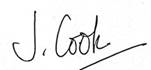 J. Cook